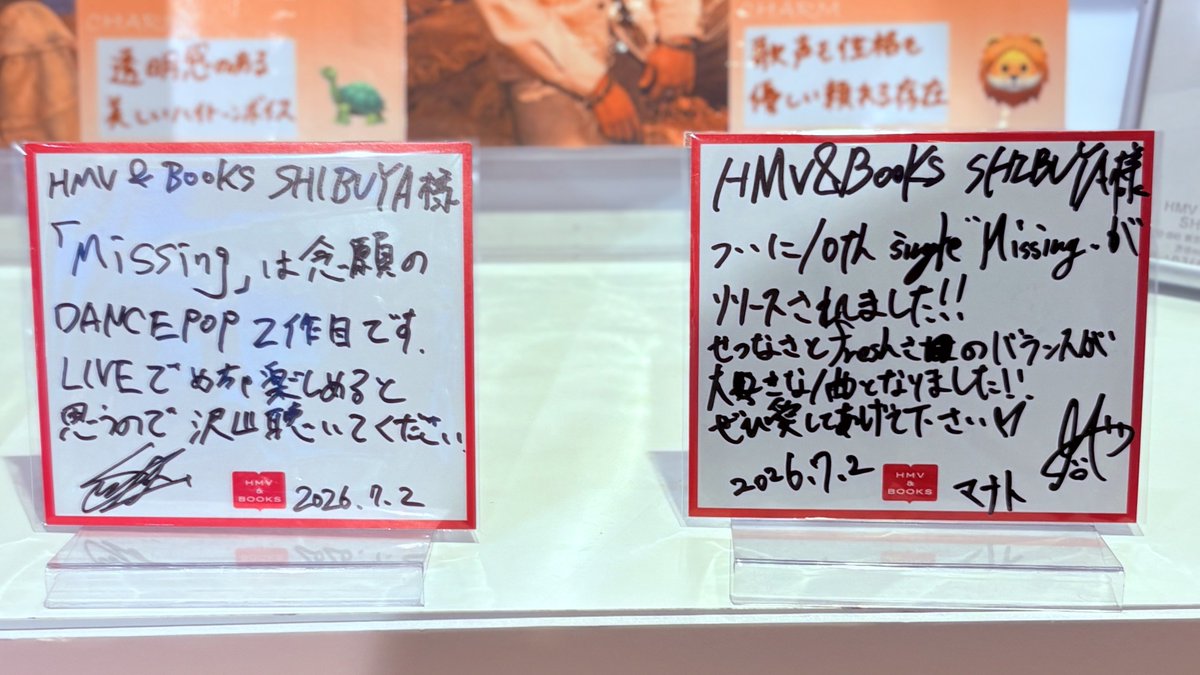 CHARM
透明感のある
美しいハイトーンボイス
CHARM
歌声も性格も
優しい頼れる存在
HMV & BOOKS SHIBUYA様
「Missing」は念願の
DANCEPOP 2作目です.
LIVEでめちゃ楽しめると
思うので沢山聴いてください
HMV
&
BOOKS
2026.7.2
HMV&BOOKS SHIBUYA様
ついに10th single "Missing"が
リリースされました!!
せつなさとfreshさのバランスが
大好きな1曲となりました!!
ぜひ愛してあげて下さい♡
2026.7.2
HMV
&
BOOKS
マナト